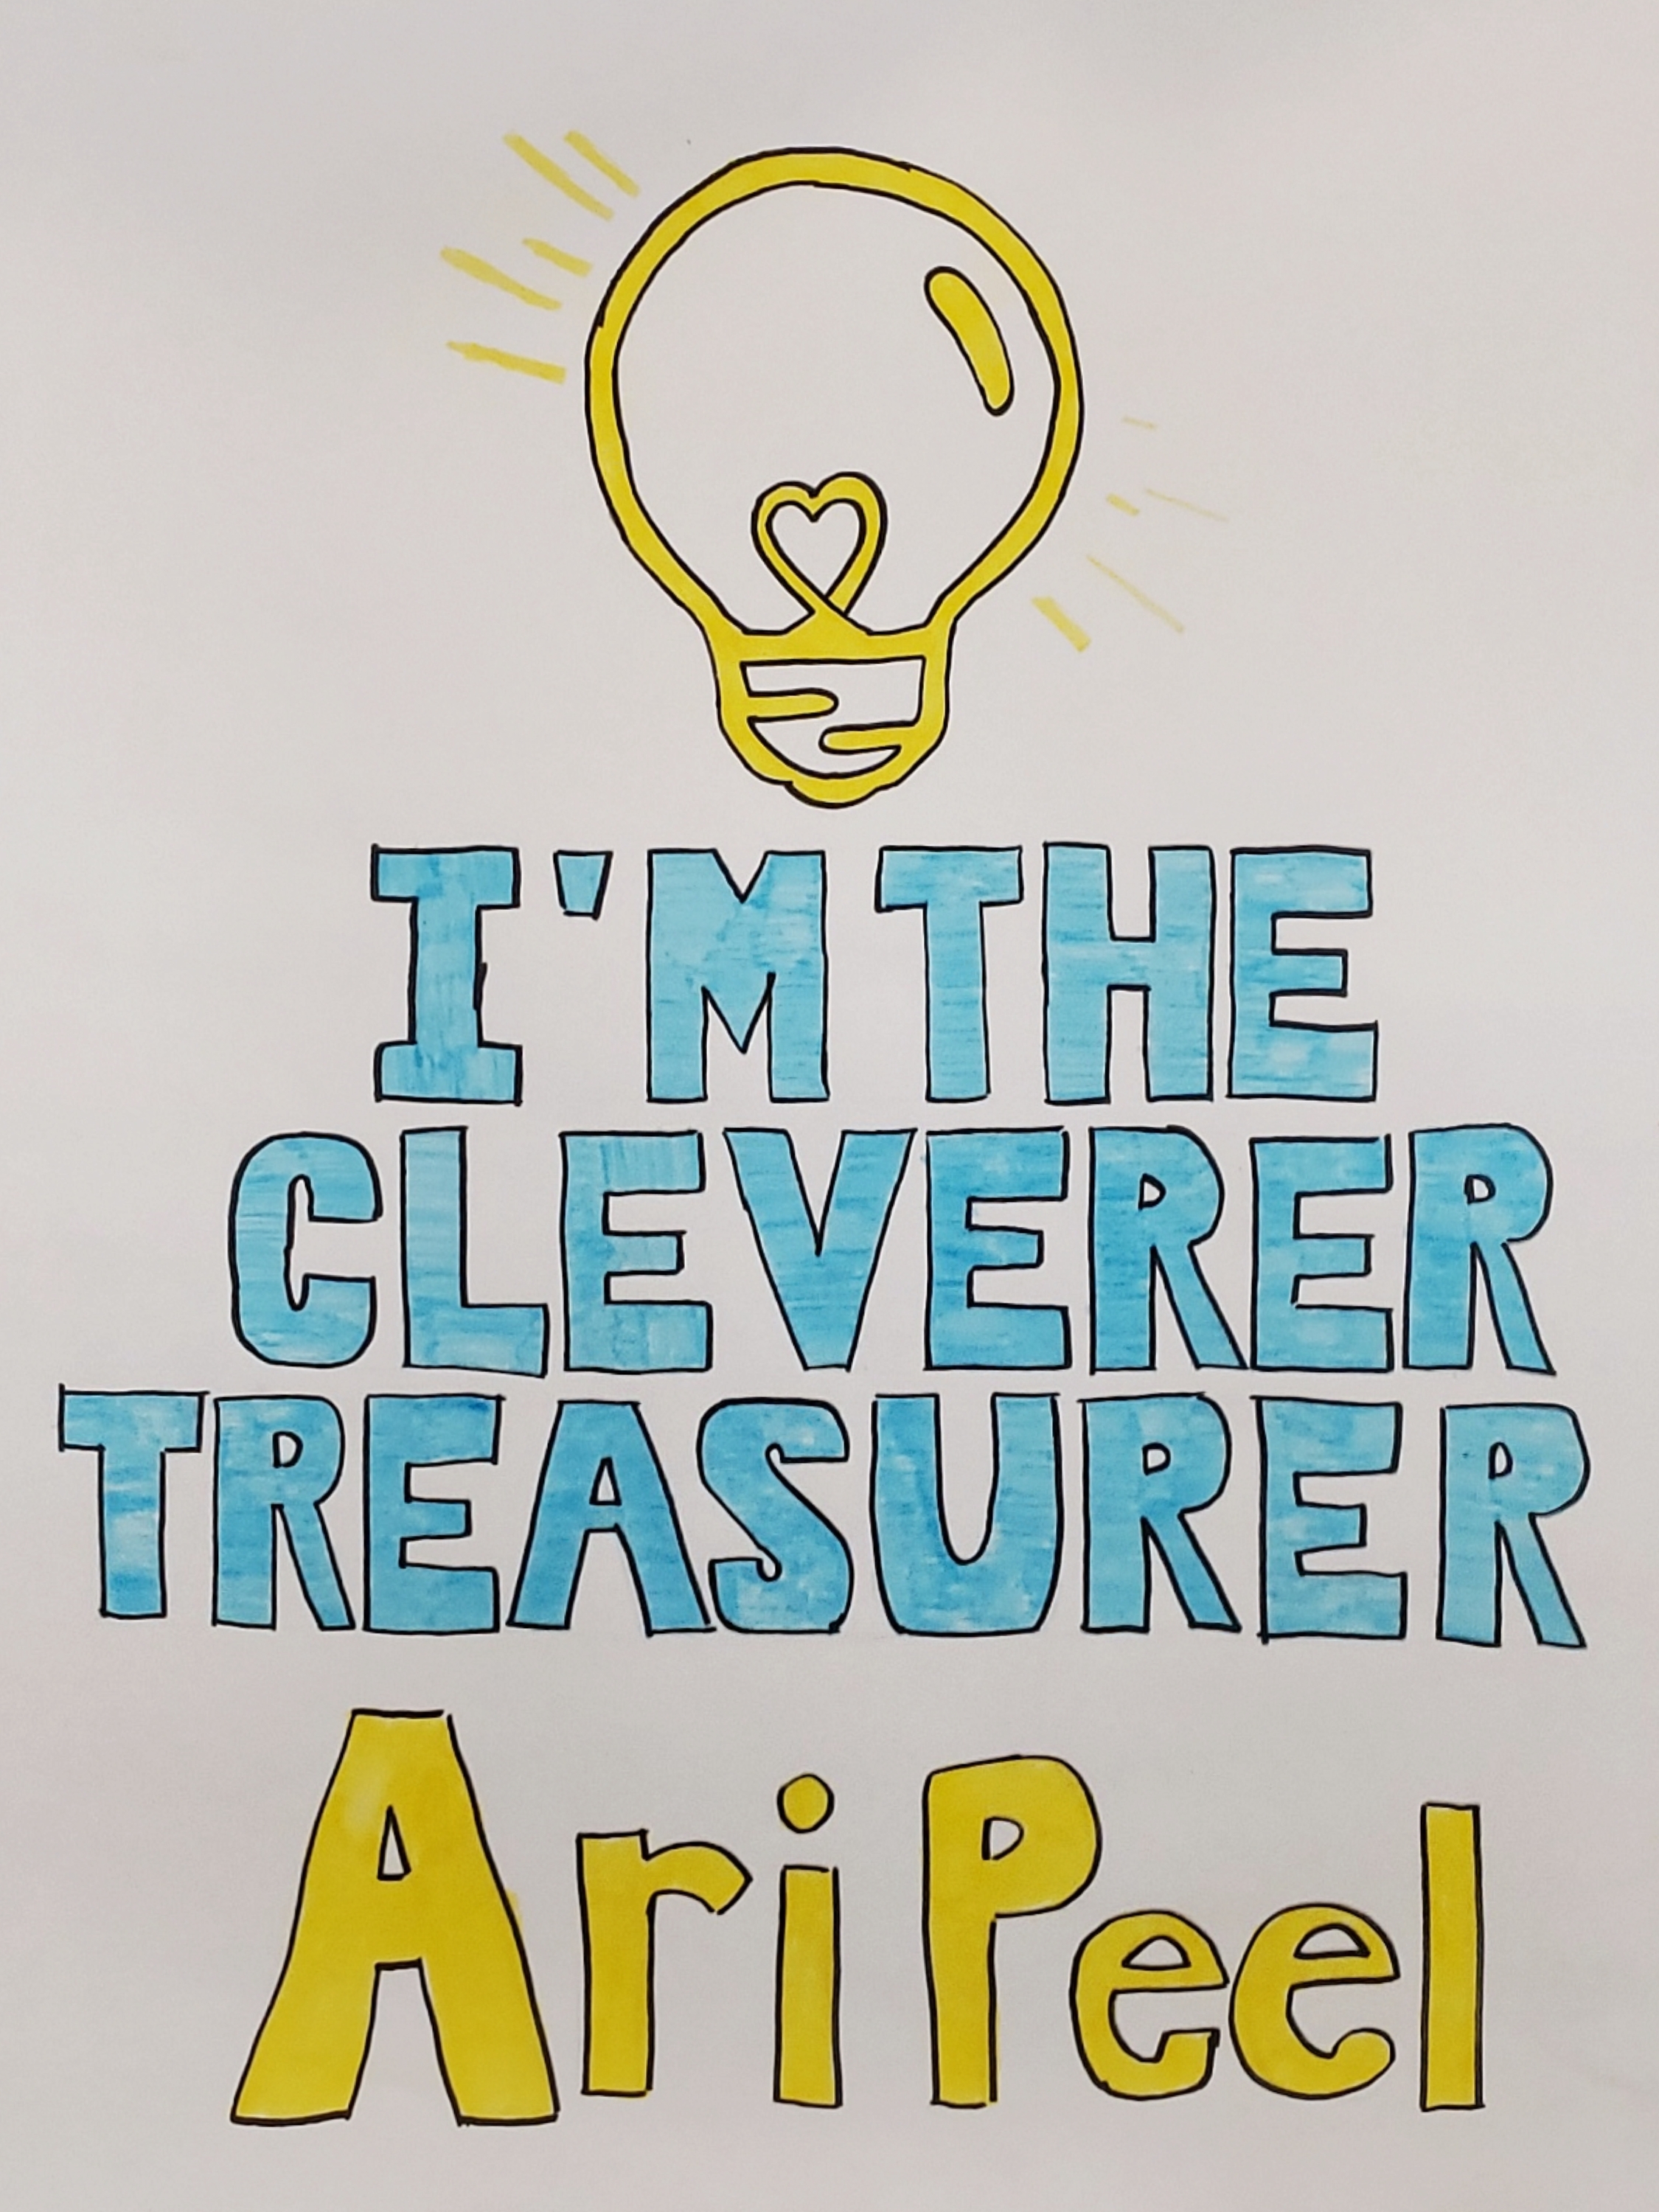 I'M THE
CLEVERER
TREASURER
Ari Peel